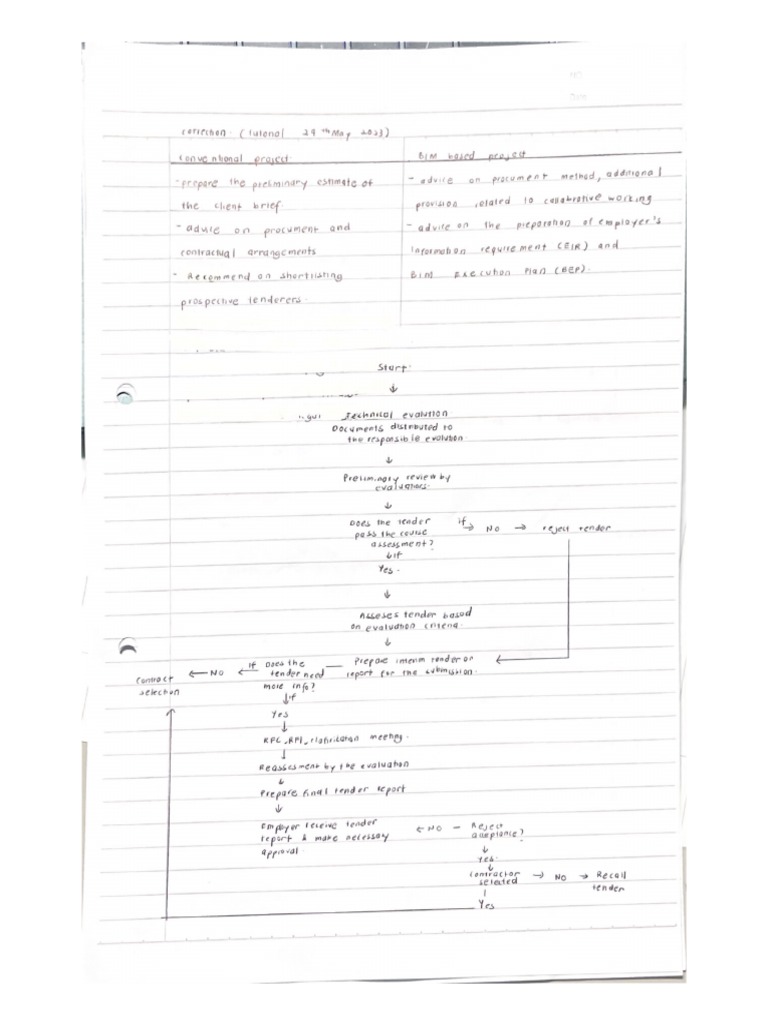 correction. (Tutorial 29th May 2023)
Conventional project.
- prepare the preliminary estimate of
the client brief.
- advice on procument and
contractual arrangements
- Recommend on shortlisting
prospective tenderers.
BIM based project
- advice on procument method, additional
provision related to collabrative working
- advice on the preparation of employer's
information requirement (EIR) and
BIM Execution Plan (BEP).
Start.
Technical evalution
Documents distributed to
the responsible evalution
Preliminary review by
evaluations.
Does the tender
pass the course
assessment?
if
NO
reject tender
if
Yes.
Asseses tender based
on evaluation criteria.
Prepare interim tender on
report for the submission.
Does the
tender need
more info?
if
NO
Contract
selection
if
Yes
RFC, RFI, clarification meeting.
Reassesment by the evaluation
Prepare final tender report
Employer receive tender
report & make necessary
approval.
NO
Reject
acceptance?
Yes.
Contractor
selected
NO
Recall
tender
Yes